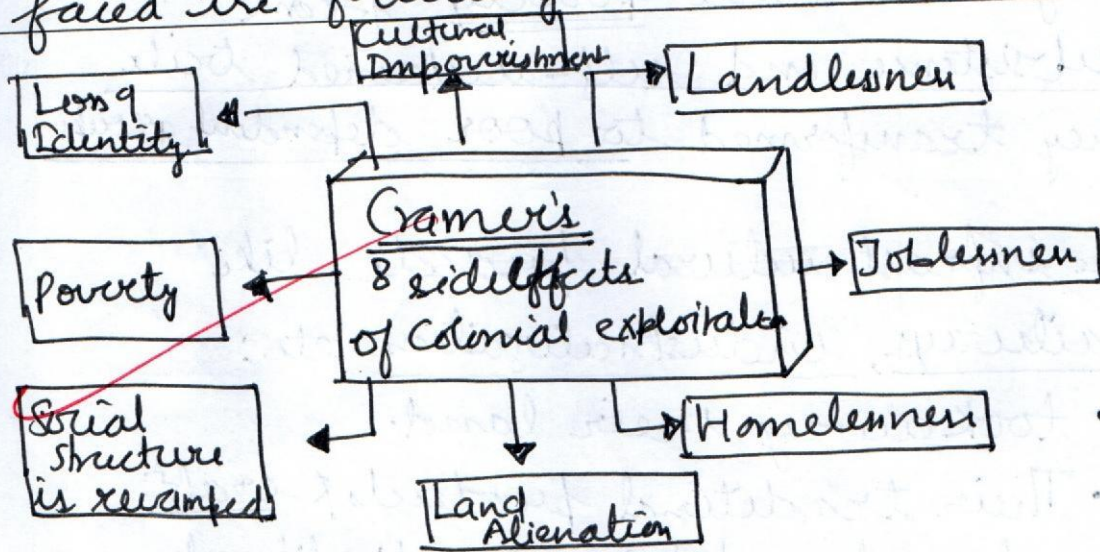 faced the following
Cultural
Impoverishment
Landlessness
Loss of
Identity
Cramer's
8 sideeffects
of Colonial exploitation
Joblessness
Poverty
Social
structure
is revamped
Homelessness
Land
Alienation